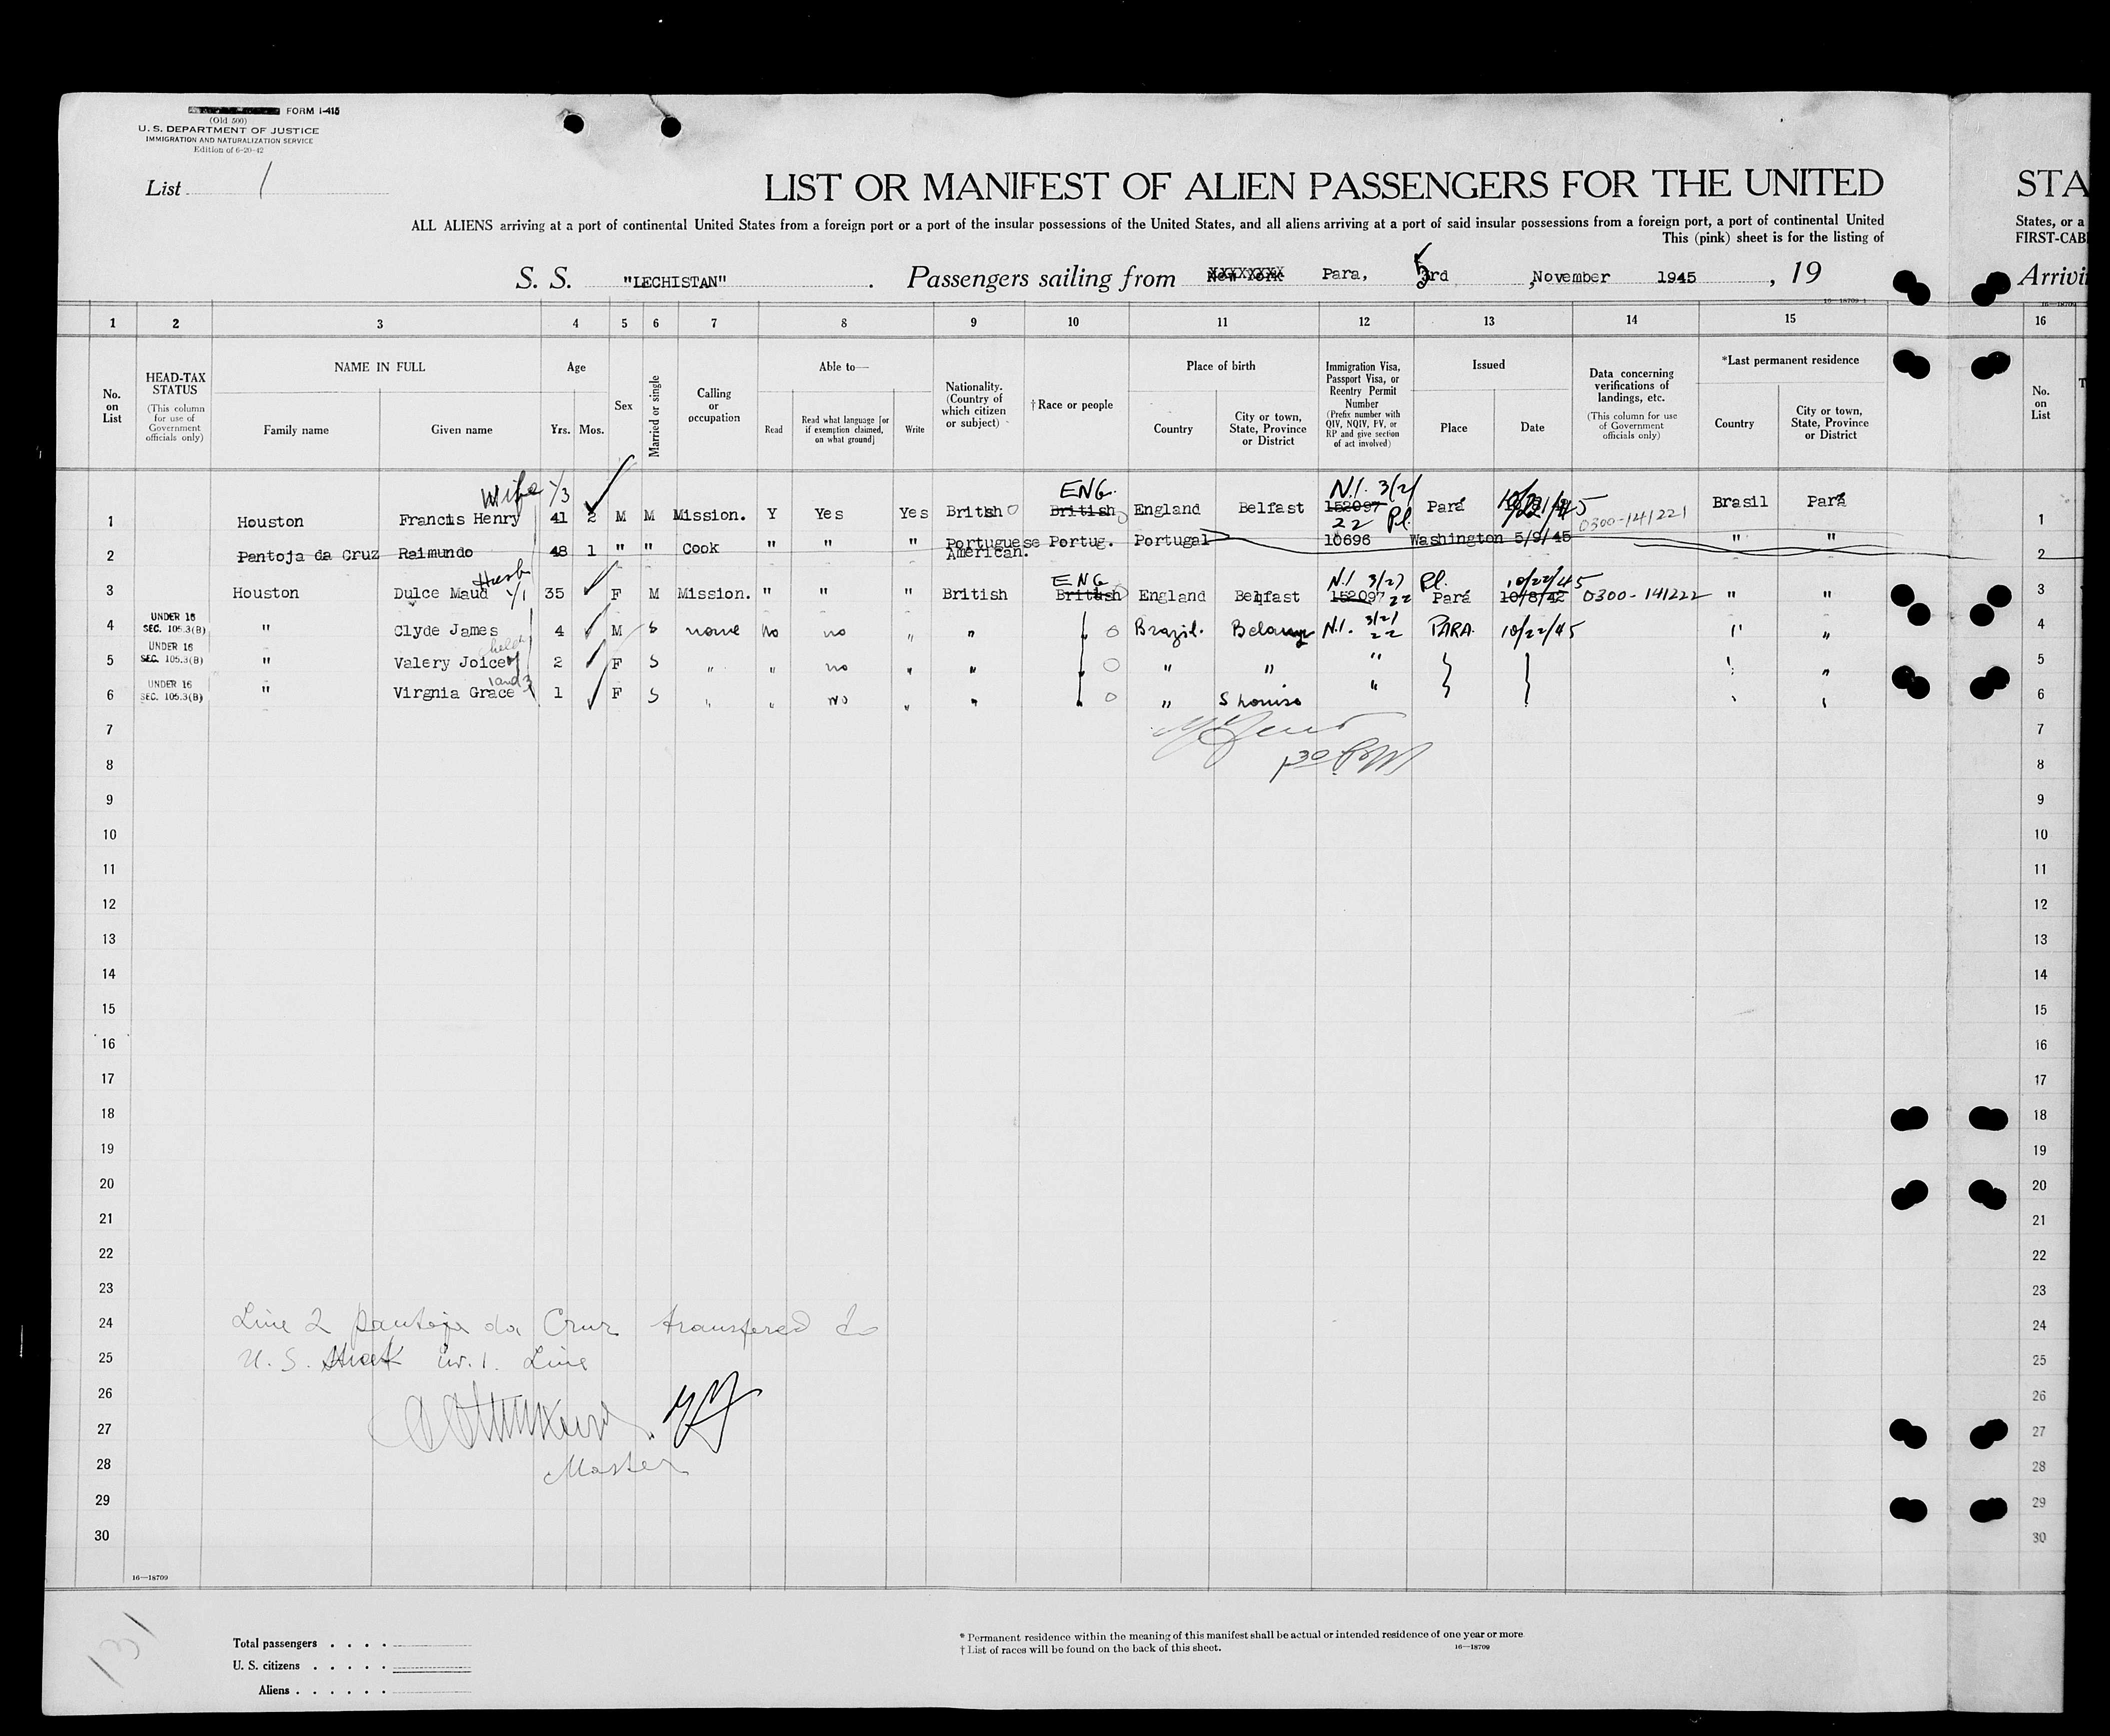 FORM I-415
(Old 500)
U. S. DEPARTMENT OF JUSTICE
IMMIGRATION AND NATURALIZATION SERVICE
Edition of 6-20-42
List 1
LIST OR MANIFEST OF ALIEN PASSENGERS FOR THE UNITED STA
ALL ALIENS arriving at a port of continental United States from a foreign port or a port of the insular possessions of the United States, and all aliens arriving at a port of said insular possessions from a foreign port, a port of continental United States, or a
This (pink) sheet is for the listing of FIRST-CAB
S. S. "LECHISTAN" . Passengers sailing from New York Para, 5rd , November 1945 , 19 Arrivi
16—18709-1
1 2 3 4 5 6 7 8 9 10 11 12 13 14 15 16
No. on List
HEAD-TAX STATUS
(This column for use of Government officials only)
NAME IN FULL
Family name
Given name
Age
Yrs. Mos.
Sex
Married or single
Calling or occupation
Able to—
Read
Read what language [or if exemption claimed, on what ground]
Write
Nationality. (Country of which citizen or subject)
† Race or people
Place of birth
Country
City or town, State, Province or District
Immigration Visa, Passport Visa, or Reentry Permit Number
(Prefix number with QIV, NQIV, PV, or RP and give section of act involved)
Issued
Place
Date
Data concerning verifications of landings, etc.
(This column for use of Government officials only)
*Last permanent residence
Country
City or town, State, Province or District
No. on List
Wife 1/3 ENG. N.I. 3/21
1 Houston Francis Henry 41 2 M M Mission. Y Yes Yes Britsh British England Belfast 152097 Pará 10/22/45 0300-141221 Brasil Pará 1
22 Pl.
2 Pantoja da Cruz Raimundo 48 1 " " Cook " " " Portuguese Portug. Portugal 10696 Washington 5/9/45 " " 2
American.
Husb 1/1 ENG N.I 3/21 Pl. 10/22/45
3 Houston Dulce Maud 35 F M Mission. " " " British British England Belfast 152097 22 Pará 10/8/42 0300-141222 " " 3
UNDER 16
SEC. 105.3(B)
4 " Clyde James 4 M S none no no " " Brazil. N.I. 3/21 22 PARA. 10/22/45 " " 4
UNDER 16
SEC. 105.3(B)
5 " Valery Joice 2 F S " " no " " " " " " " 5
1 and 3
UNDER 16
SEC. 105.3(B)
6 " Virgnia Grace 1 F S " " No " " " " 6
7 7
8 8
9 9
10 10
11 11
12 12
13 13
14 14
15 15
16 16
17 17
18 18
19 19
20 20
21 21
22 22
23 23
24 Line 2 Pantoja da Cruz transfered to 24
25 U. S. Line 25
26 26
27 27
28 Master 28
29 29
30 30
16—18709
131
Total passengers . . . .
U. S. citizens . . . . .
Aliens . . . . . .
* Permanent residence within the meaning of this manifest shall be actual or intended residence of one year or more
† List of races will be found on the back of this sheet. 16—18709